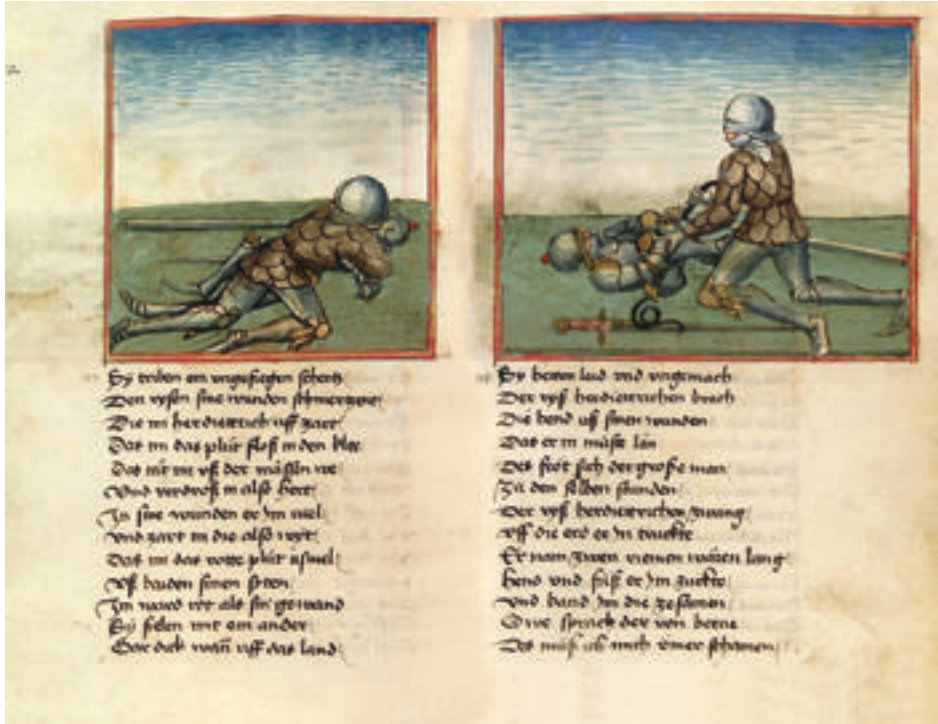 Sy triben em ungefiegen schertz
Den rysen sine wunden schmertzete
Die im her dietterich uff zart
Das im das plůt floß in den klee
Das tůt im uß der mässen we
Und verdroß in also hert
In sine wunden er im viel
Und zart im die also wyt
Das im das rotte plůt uswiel
Uß baiden sinen sitten
Im ward rot als sin gewand
Sy fielen mit ein ander
Gar dick uff das land
Sy hetten laid und ungemach
Der ryß herdietterichen brach
Die hend uß sinen wunden
Das er in můste lan
Des fröt sich der große man
Zů den selben stunden
Der ryß herdietterichen zwang
Uff die erd er in truckte
Er nam zwen riemen wären lang
hend und fůß er im zuckte
Und band im die zesamen
O we sprach der von berne
Des můß ich mich ymer schamen